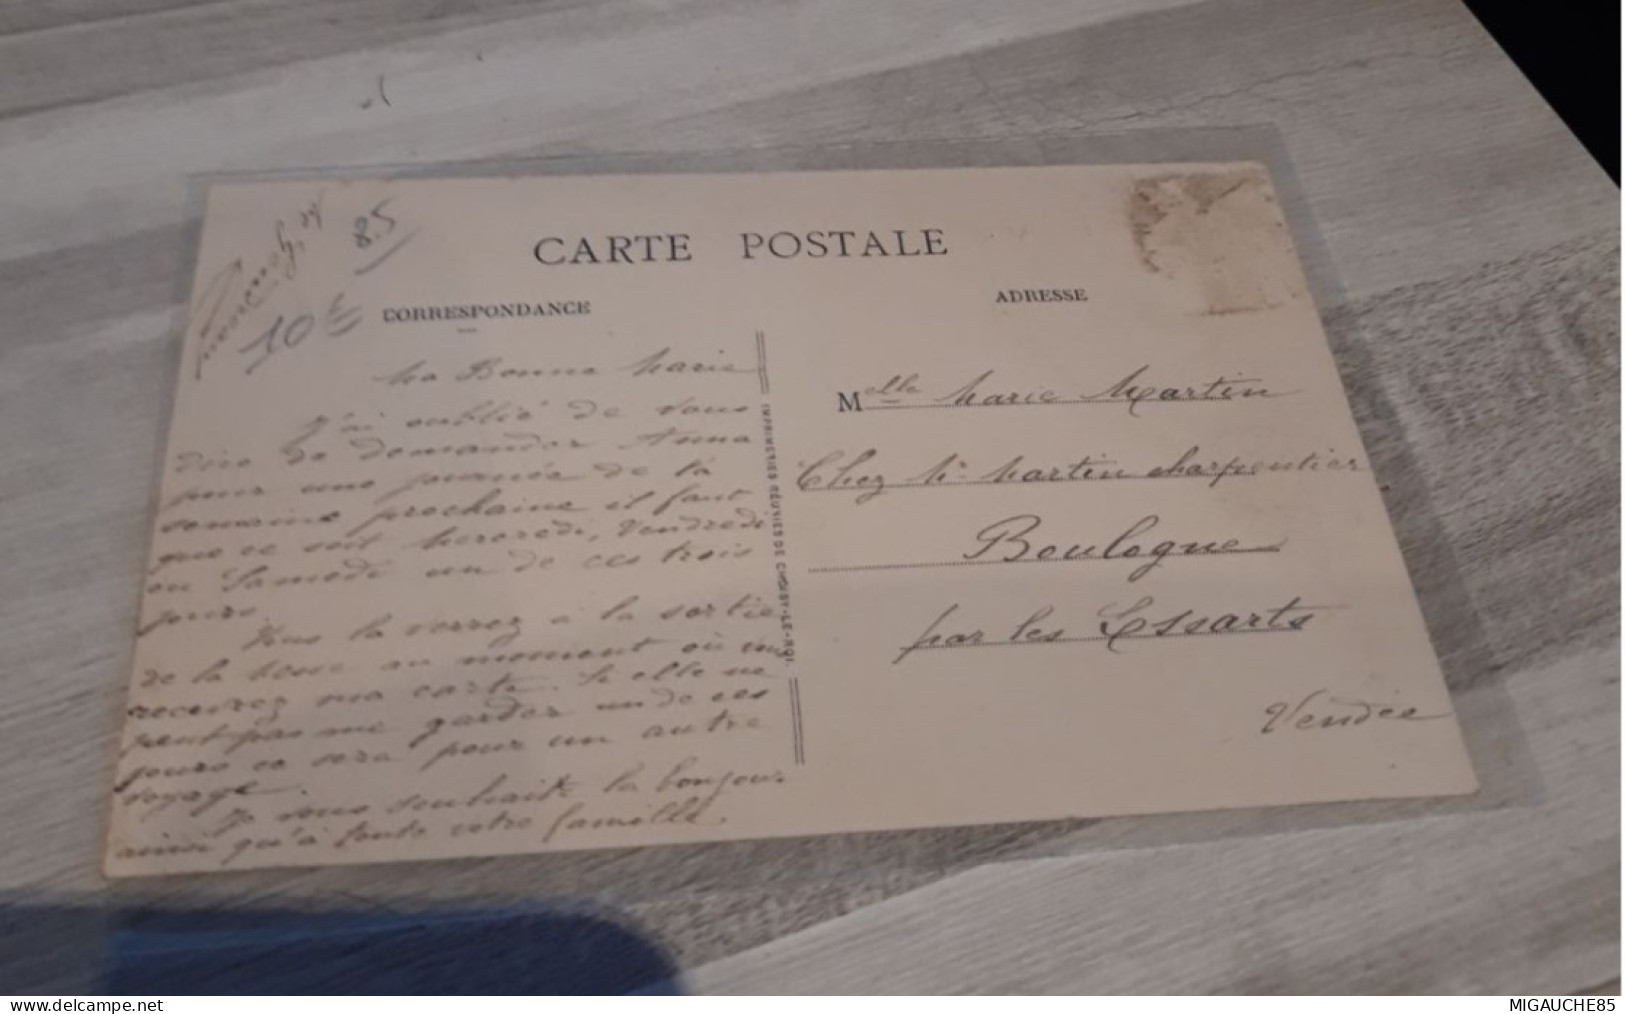 85
10€
CARTE POSTALE
CORRESPONDANCE
ADRESSE
Ma Bonne Marie
J'ai oublié de vous
dire de demander Anna
pour une journée de la
semaine prochaine il faut
que ce soit Mercredi, Vendredi
ou Samedi un de ces trois
jours.
Vous la verrez à la sortie
de la messe au moment où vous
recevrez ma carte. Si elle ne
peut pas me garder un de ces
jours ce sera pour un autre
voyage.
Je vous souhaite le bonjour
ainsi qu'à toute votre famille.
IMPRIMERIES RÉUNIES DE CHOISY-LE-ROI
Melle Marie Martin
Chez Mr Martin charpentier
Boulogne
par les Essarts
Vendée
www.delcampe.net
MIGAUCHE85